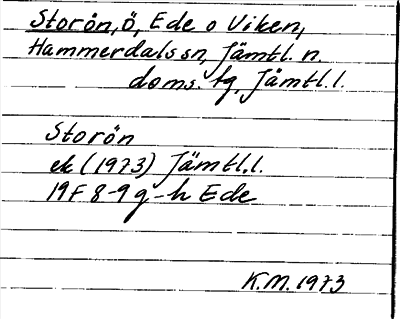 Storön, ö, Ede o Viken,
Hammerdals sn, Jämtl. n.
doms. tg, Jämtl. l.
Storön
ek (1973) Jämtl. l.
19F 8-9 g-h Ede
K.M. 1973